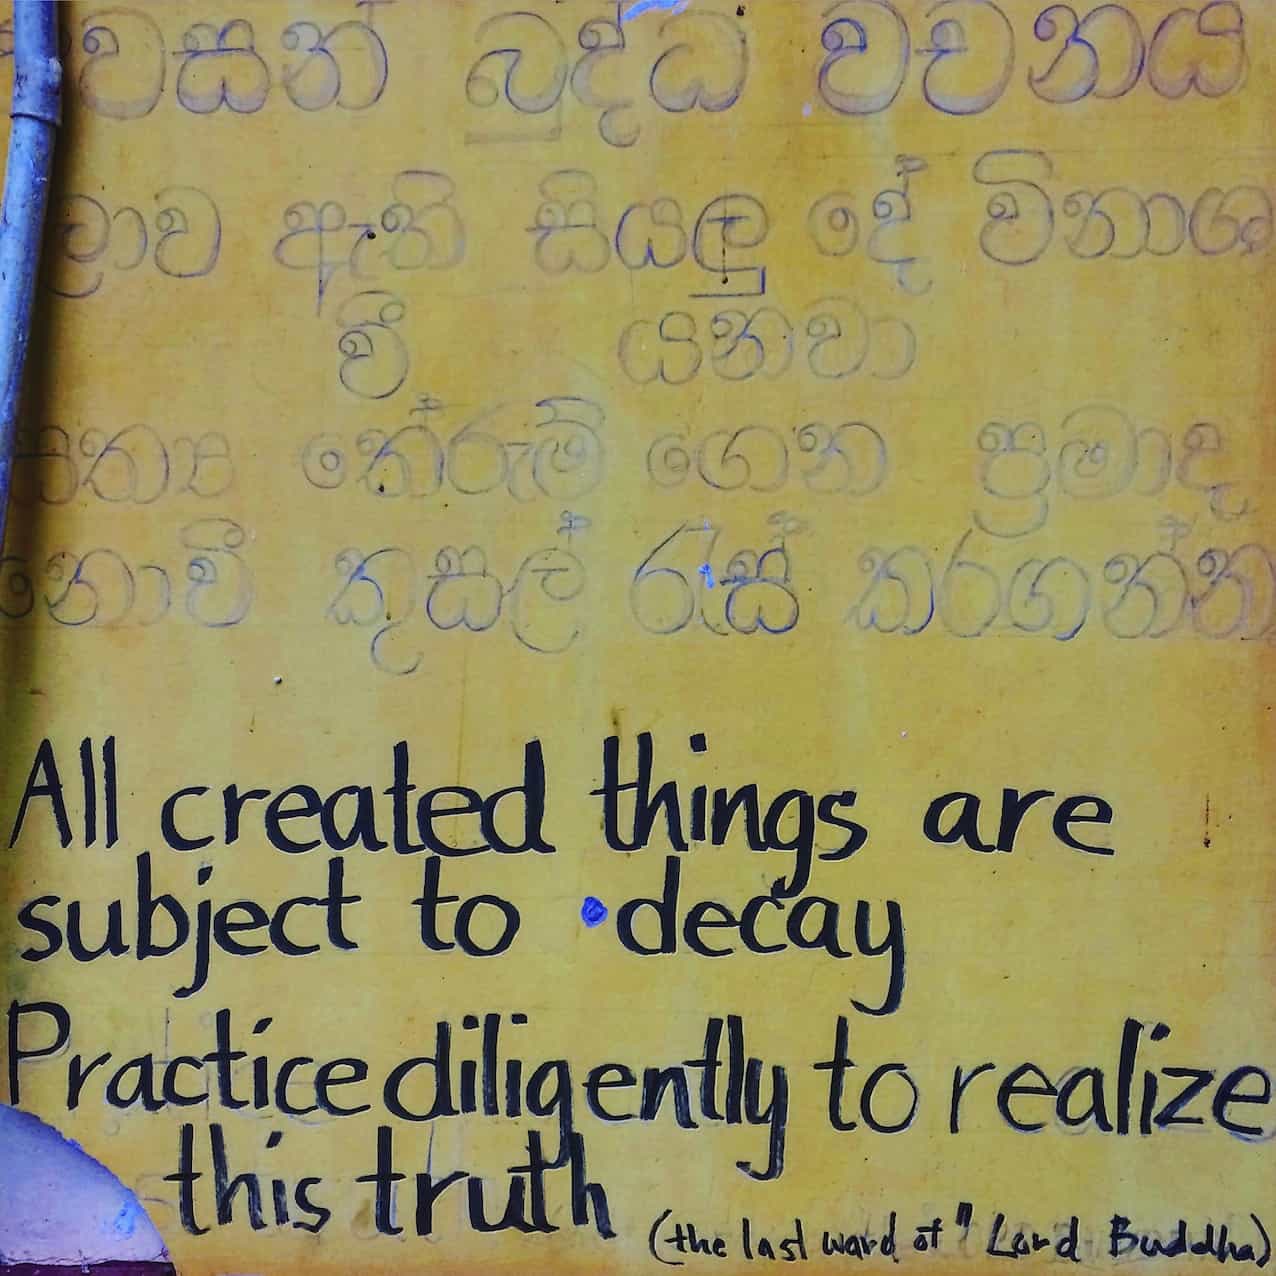 වසන් බුද්ධ වචනය
ඇති සියලු දේ විනාශ
වී යනවා
සත්‍ය තේරුම් ගෙන ප්‍රමාද
නොවී කුසල් රැස් කරගන්න
All created things are
subject to decay
Practice diligently to realize
this truth
(the last ward of " Lord Buddha)